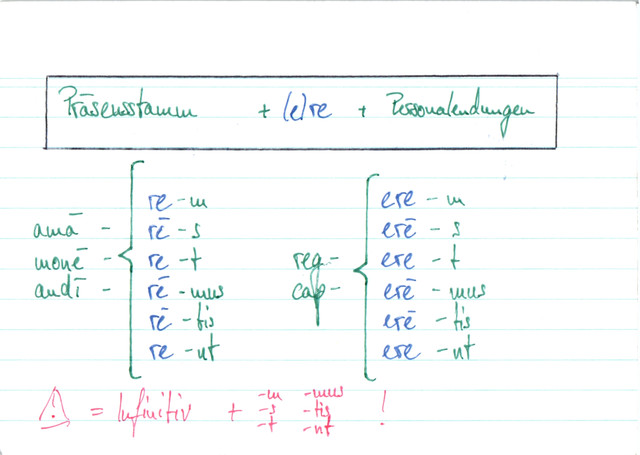 Präsensstamm + (e)re + Personalendungen
re - m
rē - s
re - t
rē - mus
rē - tis
re - nt
amā -
monē -
audī -
ere - m
erē - s
ere - t
erē - mus
erē - tis
ere - nt
reg -
cap -
⚠ = Infinitiv + -m -s -t -mus -tis -nt !